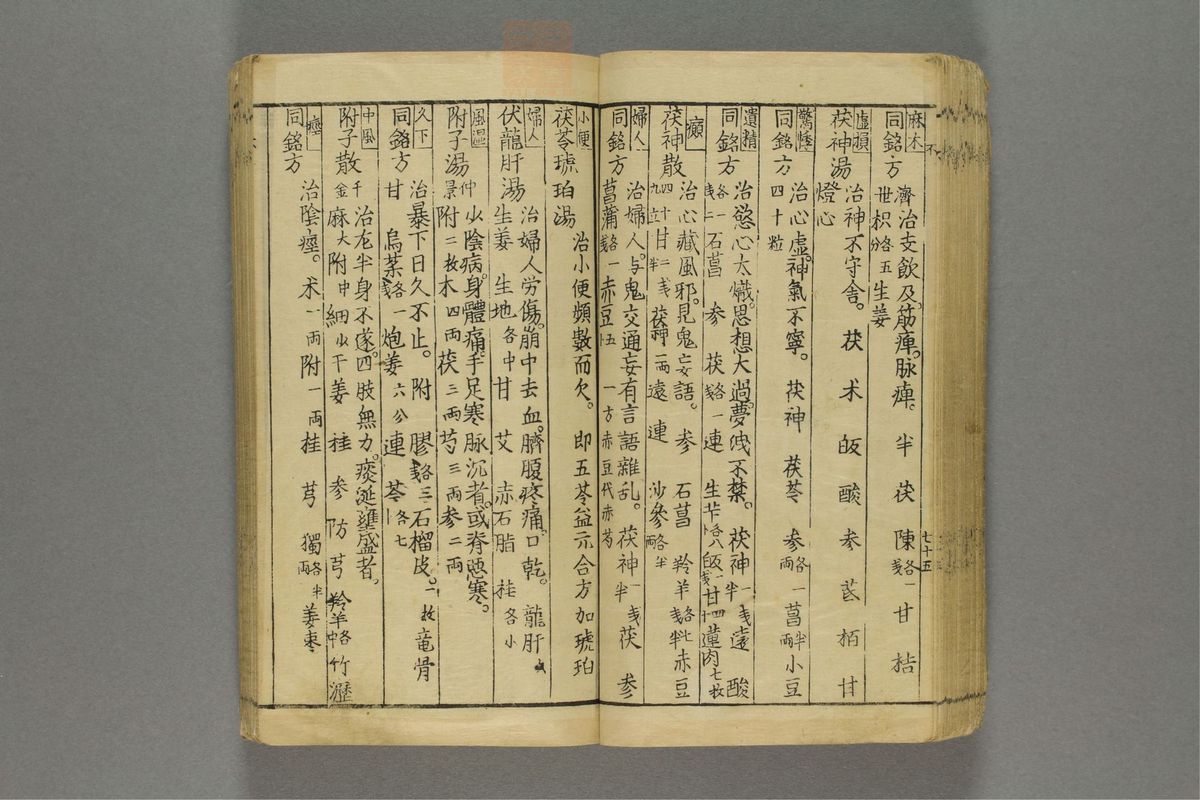 不
七十五
麻木
同銘方
濟世
治支飲及筋痺。脉痺。 半 茯 陳 各一戔 甘 桔
枳 各五分 生姜
虚損
茯神湯
治神不守舎。 茯 术 皈 酸 参 芪 栢 甘
燈心
驚悸
同銘方
治心虚。神氣不寧。 茯神 茯苓 参 各一両 菖 半両 小豆
四十粒
遺精
同銘方
治慾心太熾。思想大過。夢洩不禁。 茯神 一戔半 遠 酸
各一戔二 石菖 参 茯 各一戔 連 生芐 各八卜 皈 一戔 甘 四卜 蓮肉 七枚
癲
茯神散
治心藏風邪。見鬼妄語。 参 石菖 羚羊 赤豆
四十九立 甘 二戔半 茯神 一両 遠 連 沙參 各半両
婦人
同銘方
治婦人与鬼交通妄有言語雜乱。 茯神 一戔半 茯 参
菖蒲 各一戔 赤豆 五卜 一方赤豆代赤芍
小便
茯苓琥珀湯
治小便頻數而欠。 即五苓益元合方加琥珀
婦人
伏龍肝湯
治婦人労傷。崩中去血。臍腹疼痛。口乾。 龍肝
生姜 生地 各中 甘 艾 赤石脂 桂 各小
風湿
附子湯
仲景
少陰病。身體痛。手足寒脉沉者。或脊悪寒。
附 二枚 木 四両 茯 三両 芍 三両 参 二両
久下
同銘方
治暴下日久不止。 附 膠 各三戔 石榴皮。一枚 竜骨
甘 烏葉 各一戔 炮姜 六分 連 苓 各七卜
中風
附子散
千金
治左半身不遂。四肢無力。痰涎壅盛者。
麻 大 附 中 細 少 干姜 桂 参 防 芎 羚羊 各中 竹瀝
痙
同銘方
治陰痙。 术 一両 附 一両 桂 芎 獨 各半両 姜棗